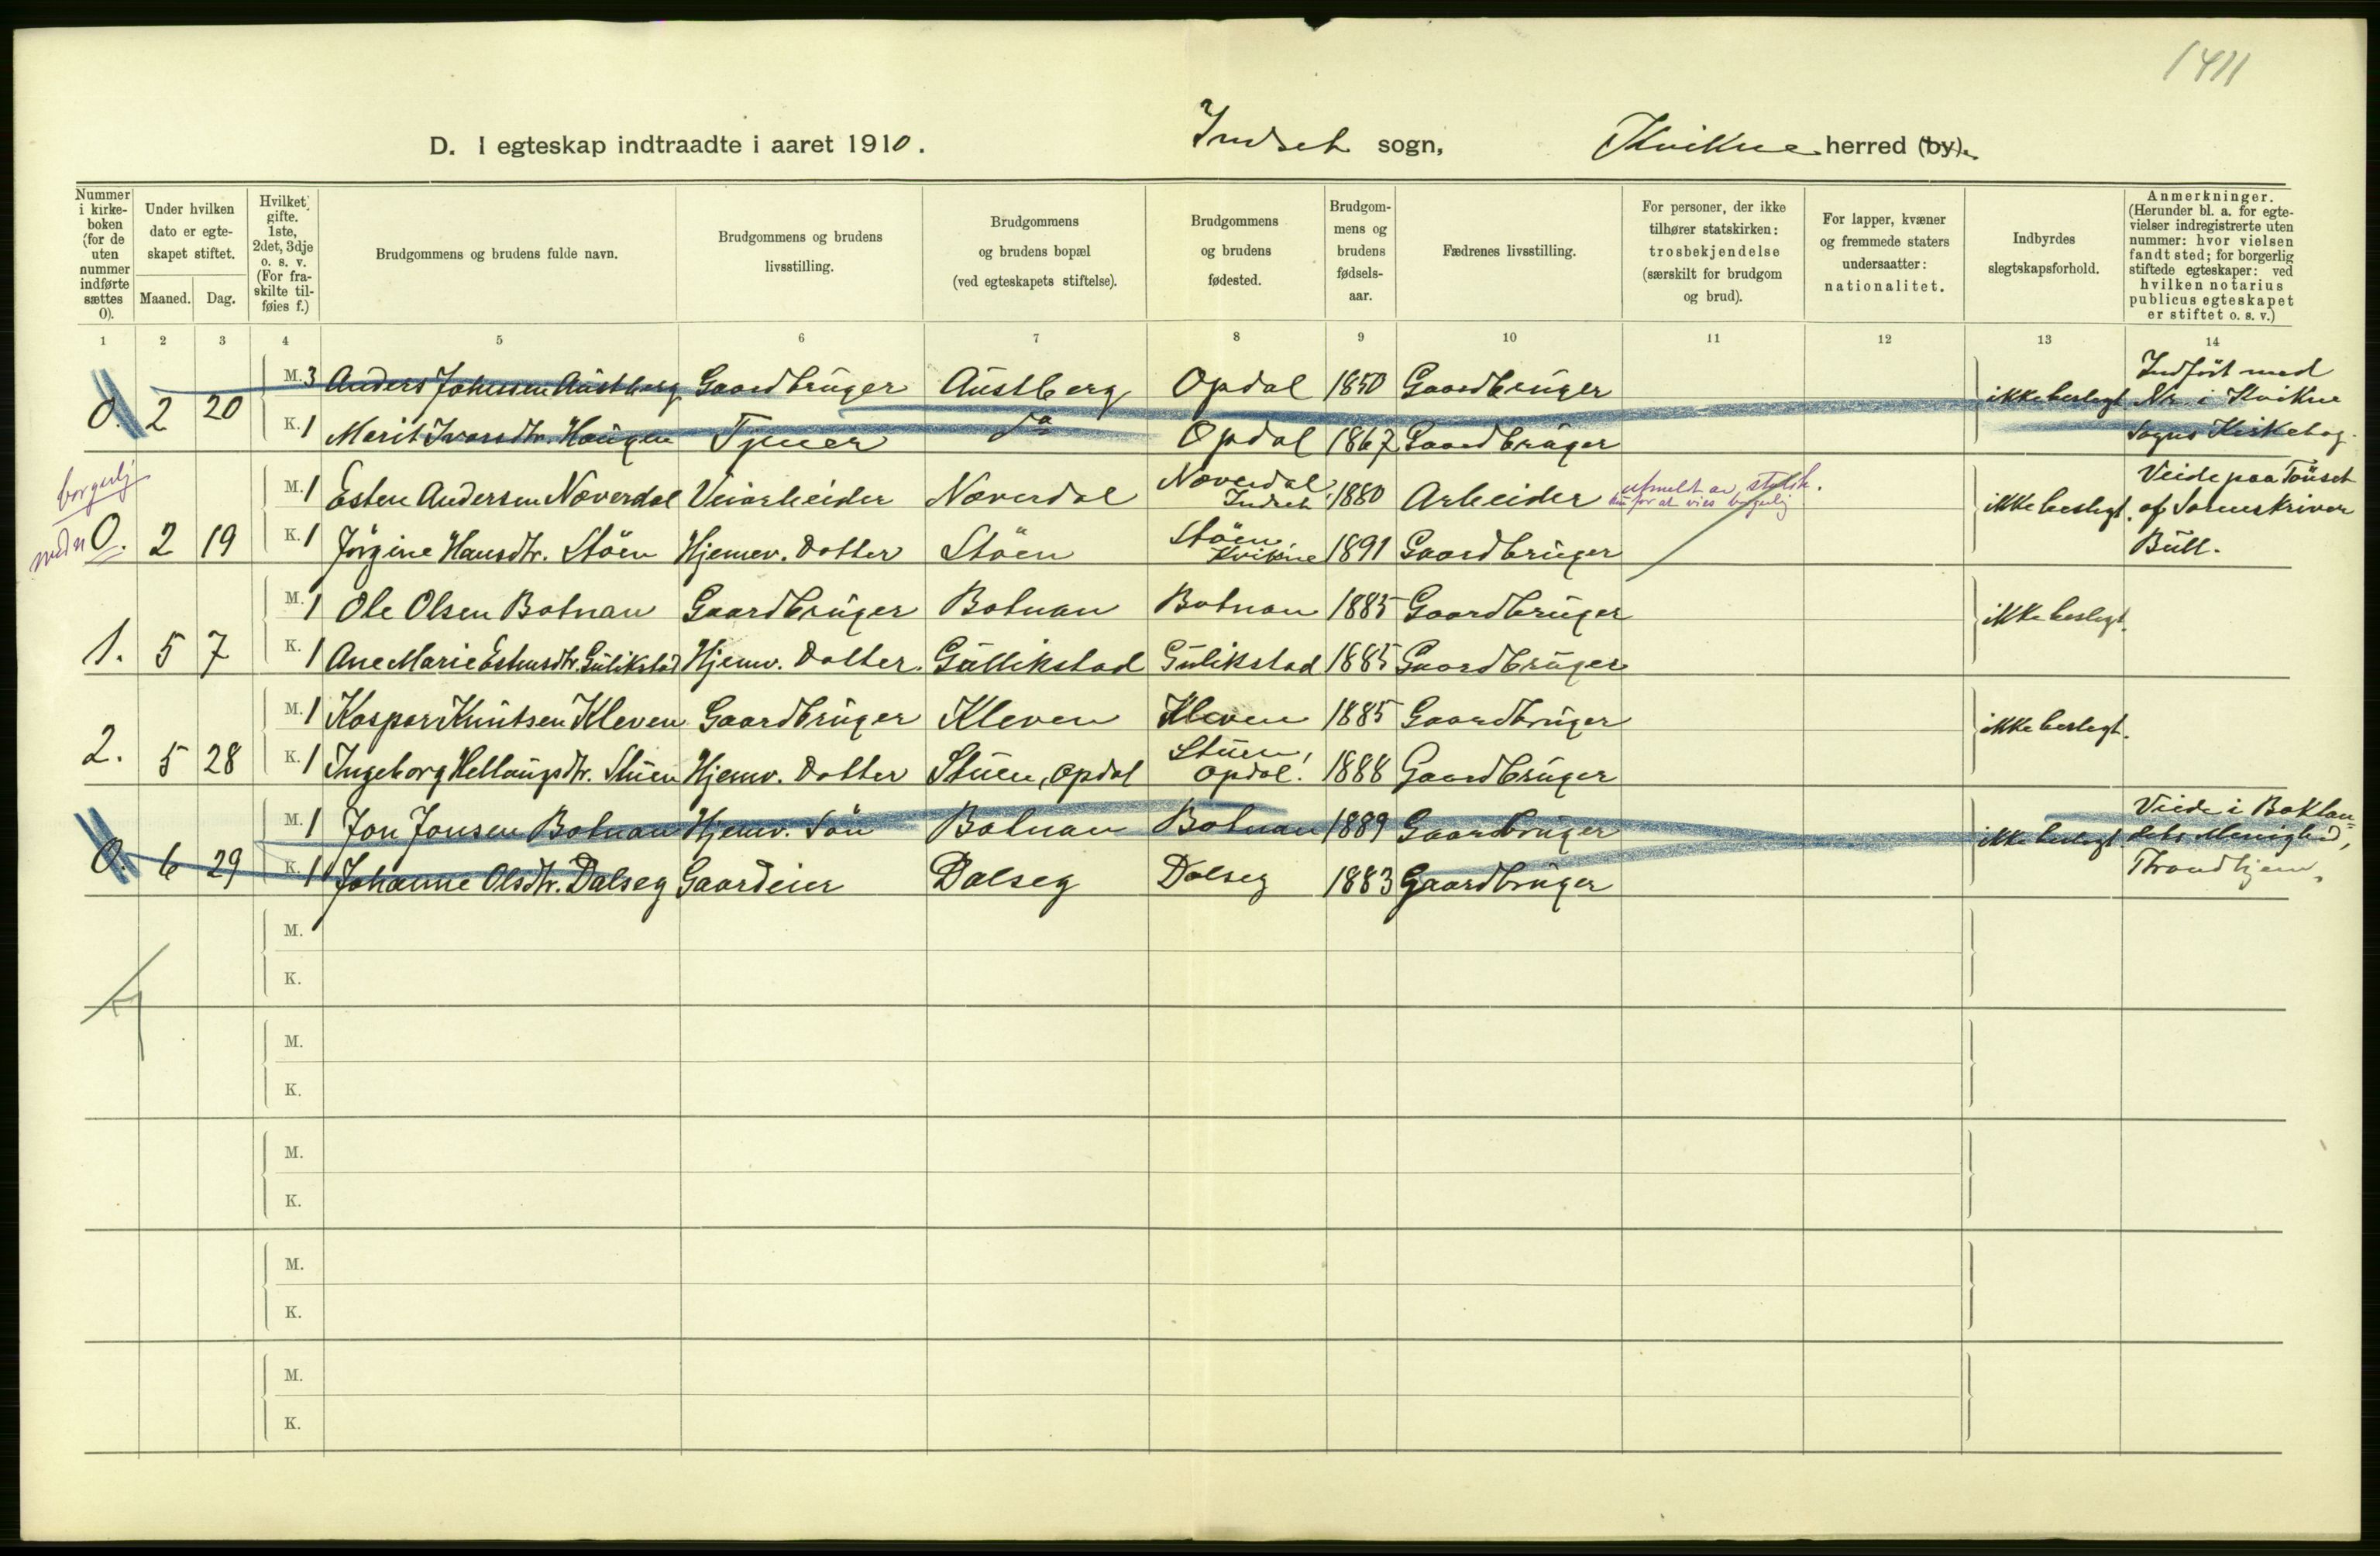 1411
D. I egteskap indtraadte i aaret 1910. Indset sogn, Kvikne herred (by).
Nummer i kirke-boken (for de uten nummer indførte sættes 0).
Under hvilken dato er egte-skapet stiftet.
Maaned. Dag.
Hvilket gifte. 1ste, 2det, 3dje o. s. v. (For fra-skilte til-føies f.)
Brudgommens og brudens fulde navn.
Brudgommens og brudens livsstilling.
Brudgommens og brudens bopæl (ved egteskapets stiftelse).
Brudgommens og brudens fødested.
Brudgom-mens og brudens fødsels-aar.
Fædrenes livsstilling.
For personer, der ikke tilhører statskirken: trosbekjendelse (særskilt for brudgom og brud).
For lapper, kvæner og fremmede staters undersaatter: nationalitet.
Indbyrdes slegtskapsforhold.
Anmerkninger. (Herunder bl. a. for egte-vielser indregistrerte uten nummer: hvor vielsen fandt sted; for borgerlig stiftede egteskaper: ved hvilken notarius publicus egteskapet er stiftet o. s. v.)
1 2 3 4 5 6 7 8 9 10 11 12 13 14
0. 2 20
M. 3 Anders Johnsen Austberg Gaardbruger Austberg Opdal 1850 Gaardbruger
K. 1 Marit Ivarsdtr. Haugen Tjener do Opdal 1867 Gaardbruger
ikke beslegt.
Indført med
Nr. i Kvikne
Sogns Kirkebog.
borgerlig
0. 2 19
M. 1 Esten Andersen Næverdal Veiarbeider Næverdal Næverdal, Indset 1880 Arbeider
utmeldt av statsk.
kun for at vies borgerlig
K. 1 Jørgine Hansdtr. Støen Hjemmev. Datter Støen Støen, Kvikne 1891 Gaardbruger
ikke beslegt.
Viede paa Tønset
af Sorenskriver
Bull.
1. 5 7
M. 1 Ole Olsen Botnan Gaardbruger Botnan Botnan 1885 Gaardbruger
K. 1 Ane Marie Estensdtr. Gulikstad Hjemv. Datter. Gullikstad Gulikstad 1885 Gaardbruger
ikke beslegt.
2. 5 28
M. 1 Kaspar Knutsen Kleven Gaardbruger Kleven Kleven 1885 Gaardbruger
K. 1 Ingeborg Hellaugsdtr. Stuen Hjemv. Datter Stuen, Opdal Stuen, Opdal. 1888 Gaardbruger
ikke beslegt.
0. 6 29
M. 1 Jon Jonsen Botnan Hjemv. Søn Botnan Botnan 1889 Gaardbruger
K. 1 Johanne Olsdtr. Dalseg Gaardeier Dalseg Dalseg 1883 Gaardbruger
ikke beslegt.
Viede i Baklan-
dets Menighed,
Throndhjem.
M.
K.
M.
K.
M.
K.
M.
K.
M.
K.